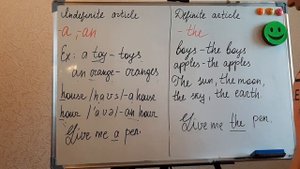 Undefinite article
-a ; -an
Ex: a toy - toys
an orange - oranges
house /haʊs/ - a house
hour /'aʊə/ - an hour
Give me a pen.
Definite article
- the
boys - the boys
apples - the apples
The sun, the moon,
the sky, the earth.
Give me the pen.